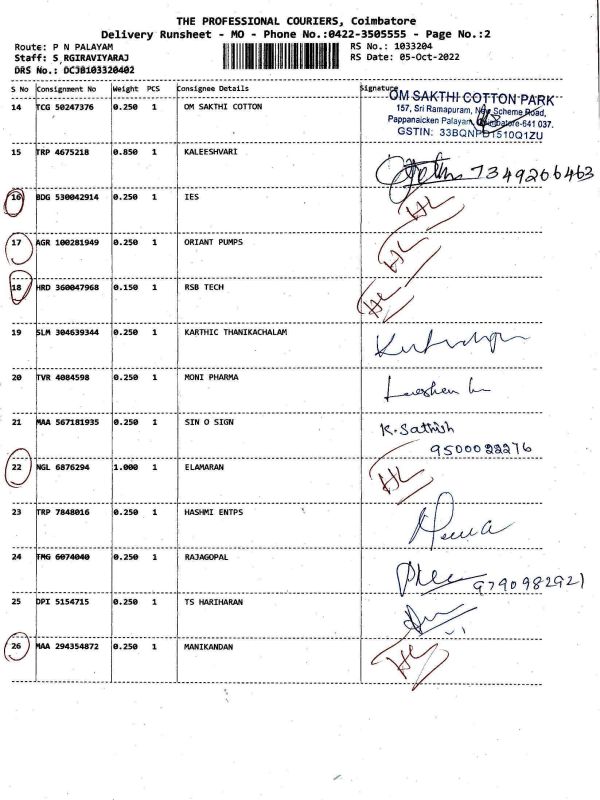 THE PROFESSIONAL COURIERS, Coimbatore
Delivery Runsheet - MO - Phone No.:0422-3505555 - Page No.:2
Route: P N PALAYAM RS No.: 1033204
Staff: S RGIRAVIYARAJ RS Date: 05-Oct-2022
DRS No.: DCJB103320402
S No Consignment No Weight PCS Consignee Details Signature
14 TCG 50247376 0.250 1 OM SAKTHI COTTON
OM SAKTHI COTTON PARK
157, Sri Ramapuram, New Scheme Road,
Pappanaicken Palayam, Coimbatore-641 037.
GSTIN: 33BQNPD1510Q1ZU
15 TRP 4675218 0.850 1 KALEESHVARI 7349206463
16 BDG 530042914 0.250 1 IES HL
17 AGR 100281949 0.250 1 ORIANT PUMPS HL
18 HRD 360047968 0.150 1 RSB TECH HL
19 SLM 304639344 0.250 1 KARTHIC THANIKACHALAM
20 TVR 4084598 0.250 1 MONI PHARMA
21 MAA 567181935 0.250 1 SIN O SIGN K. Sathish
9500022276
22 NGL 6876294 1.000 1 ELAMARAN HL
23 TRP 7848016 0.250 1 HASHMI ENTPS
24 TMG 6074040 0.250 1 RAJAGOPAL 9790982921
25 DPI 5154715 0.250 1 TS HARIHARAN
26 MAA 294354872 0.250 1 MANIKANDAN HL